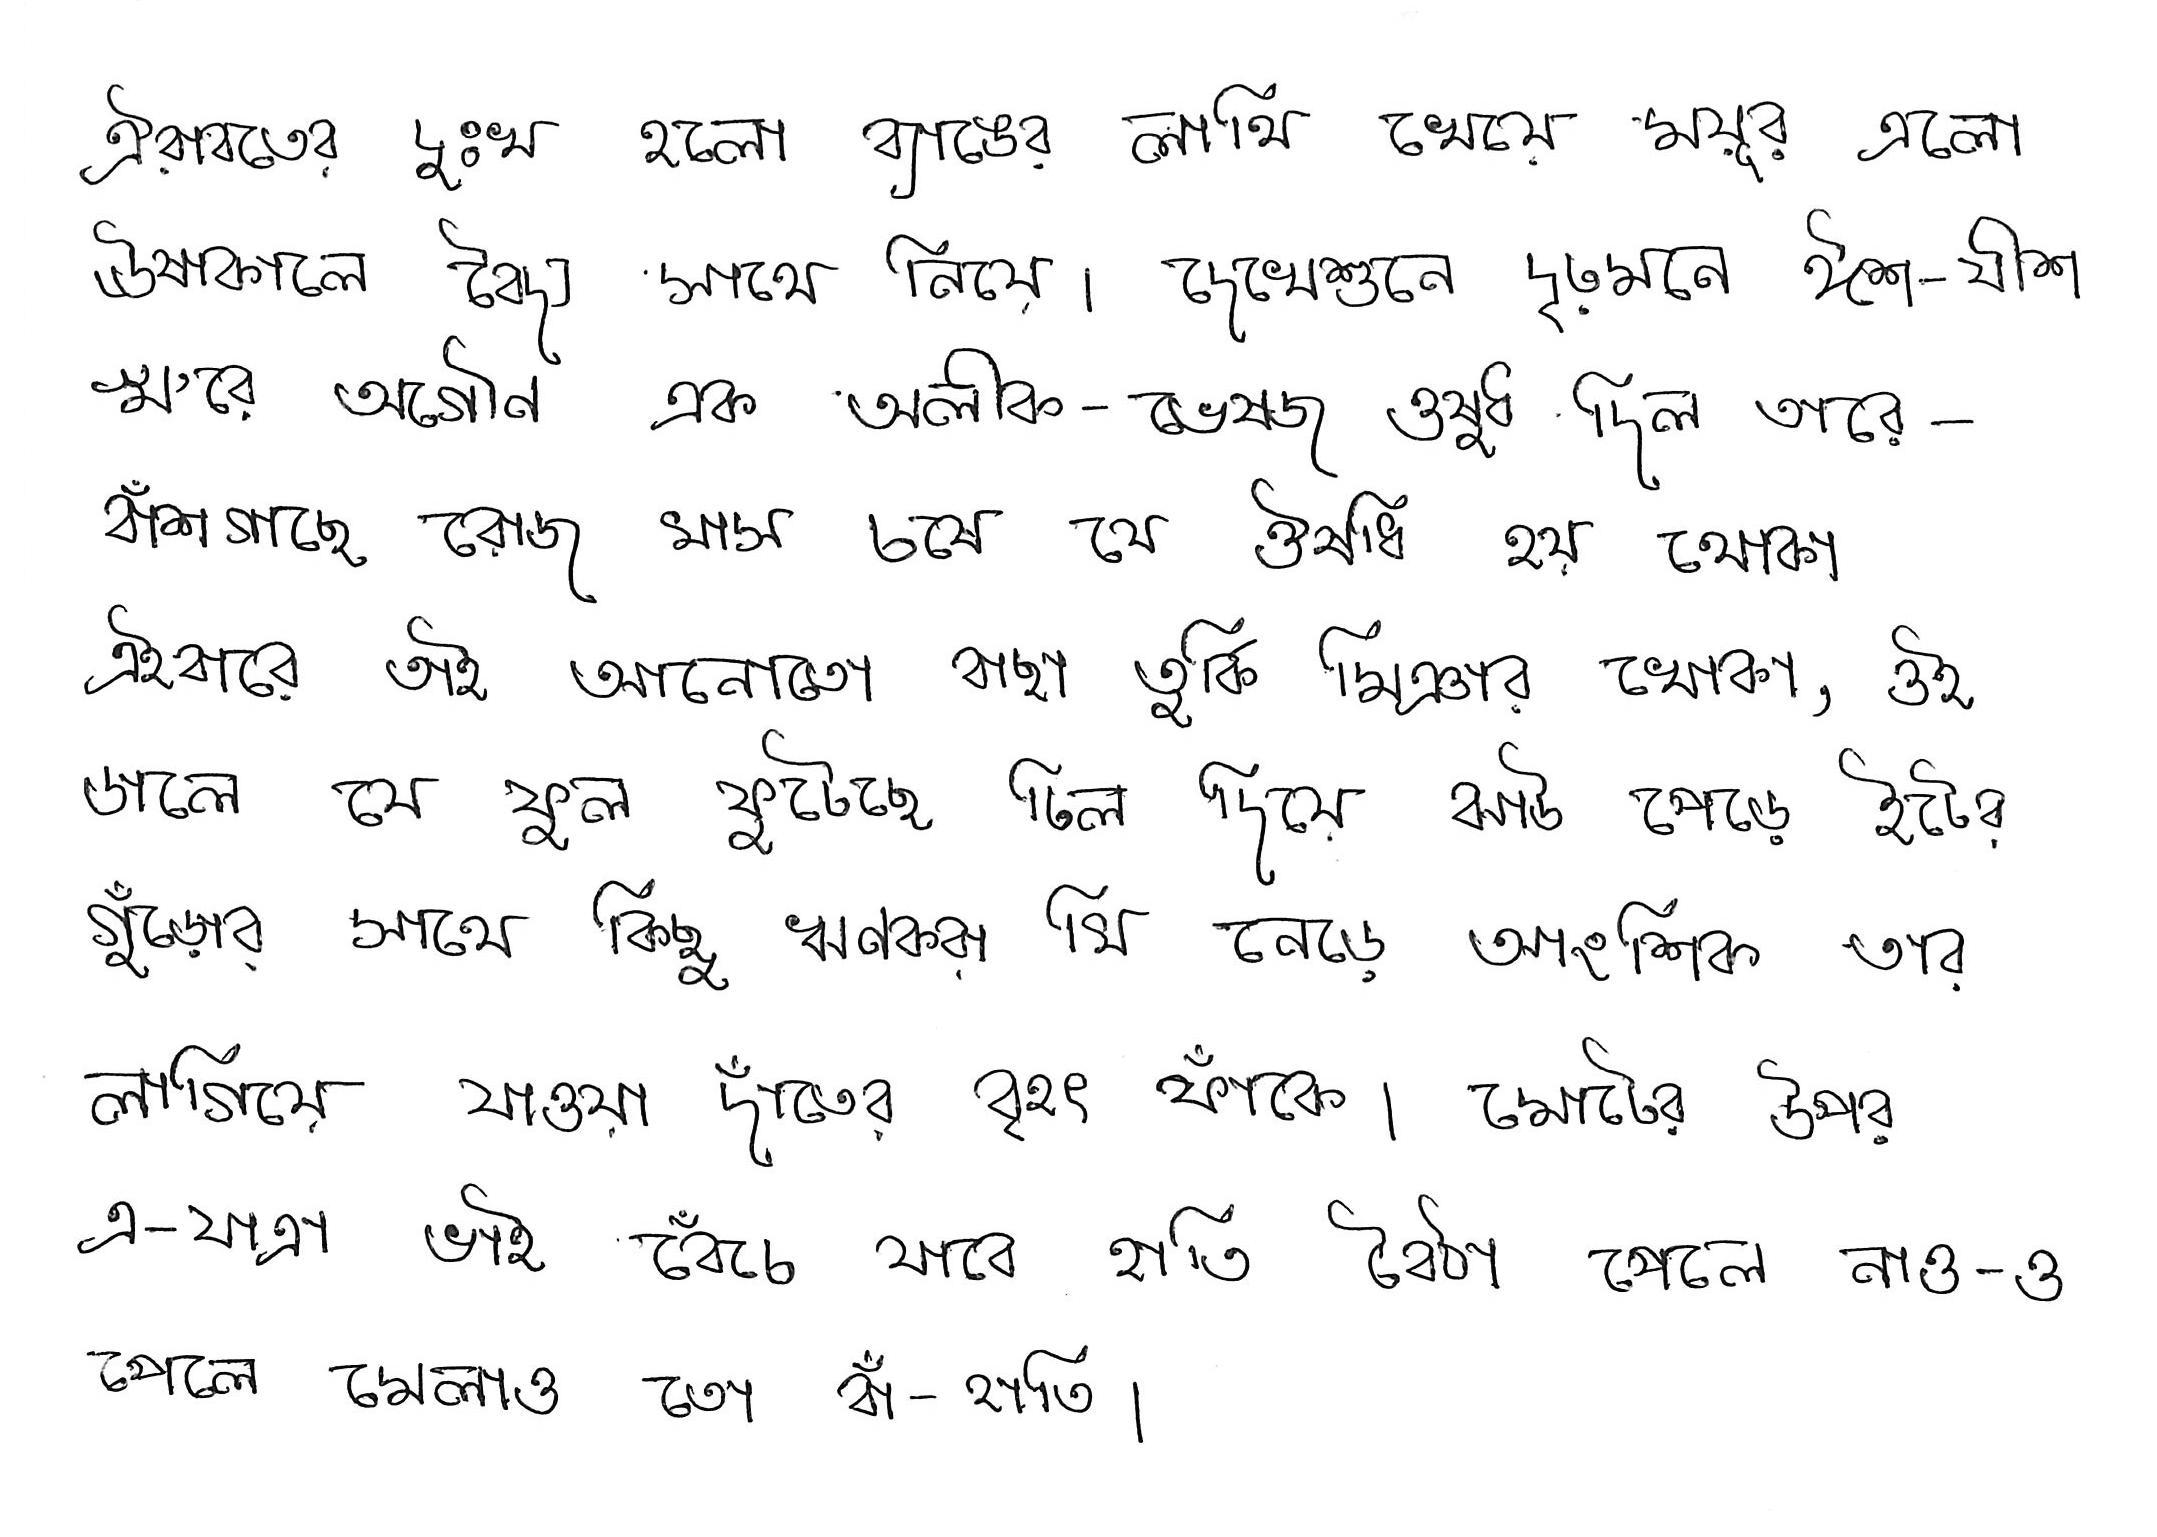 ঐরাবতের দুঃখ হলো ব্যাঙের লাথি খেয়ে ময়ূর এলো
ঊষাকালে বৈদ্য সাথে নিয়ে। দেখেশুনে দৃঢ়মনে ঈশ-যীশ
স্ম'রে অগৌন এক অলীক-ভেষজ ওষুধ দিল তারে-
বাঁশগাছে রোজ মাস চষে যে ঔষধি হয় থোকা
এইবারে তাই আনোতো বাছা তুর্কি মিঞার খোকা, ওই
ডালে যে ফুল ফুটেছে ঢিল দিয়ে ঝাউ পেড়ে ইটের
গুঁড়োর সাথে কিছু ঋনকরা ঘি নেড়ে আংশিক তার
লাগিয়ে যাওয়া দাঁতের বৃহৎ ফাঁকে। মোটের উপর
এ-যাত্রা ভাই বেঁচে যাবে হাতি বৈঠা পেলে নাও-ও
পেলে মেলাও তো বাঁ-হাতি।